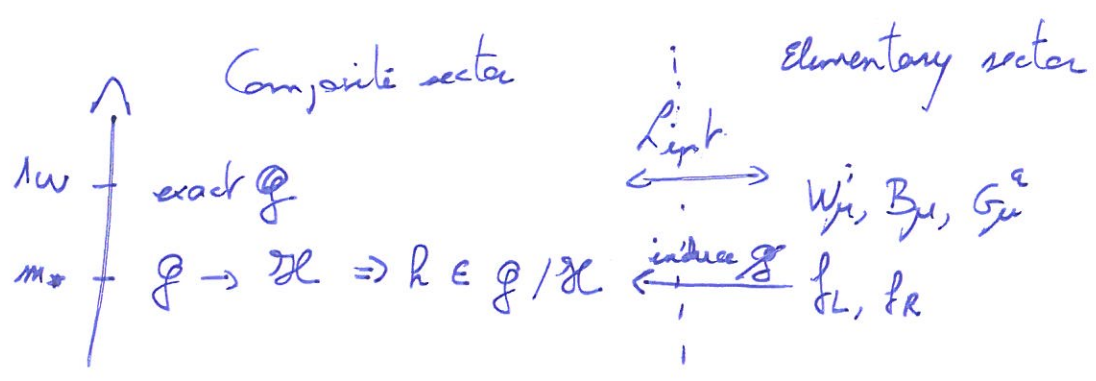 Composite sector
Elementary sector
L_int
Λ_UV exact G
W_μ^i, B_μ, G_μ^a
m_* G → H ⇒ h ∈ G/H
induce
f_L, f_R